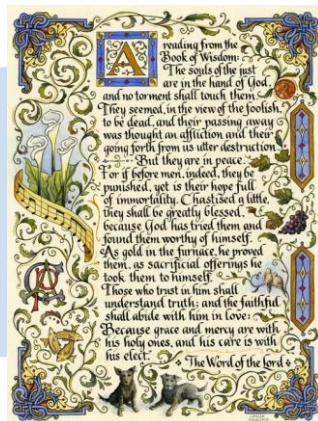 A reading from the
Book of Wisdom:
The souls of the just
are in the hand of God,
and no torment shall touch them.
They seemed, in the view of the foolish,
to be dead, and their passing away
was thought an affliction and their
going forth from us utter destruction.
But they are in peace.
For if before men, indeed, they be
punished, yet is their hope full
of immortality. Chastised a little,
they shall be greatly blessed,
because God has tried them and
found them worthy of himself.
As gold in the furnace, he proved
them, as sacrificial offerings he
took them to himself.
Those who trust in him shall
understand truth; and the faithful
shall abide with him in love:
Because grace and mercy are with
his holy ones, and his care is with
his elect. The Word of the Lord